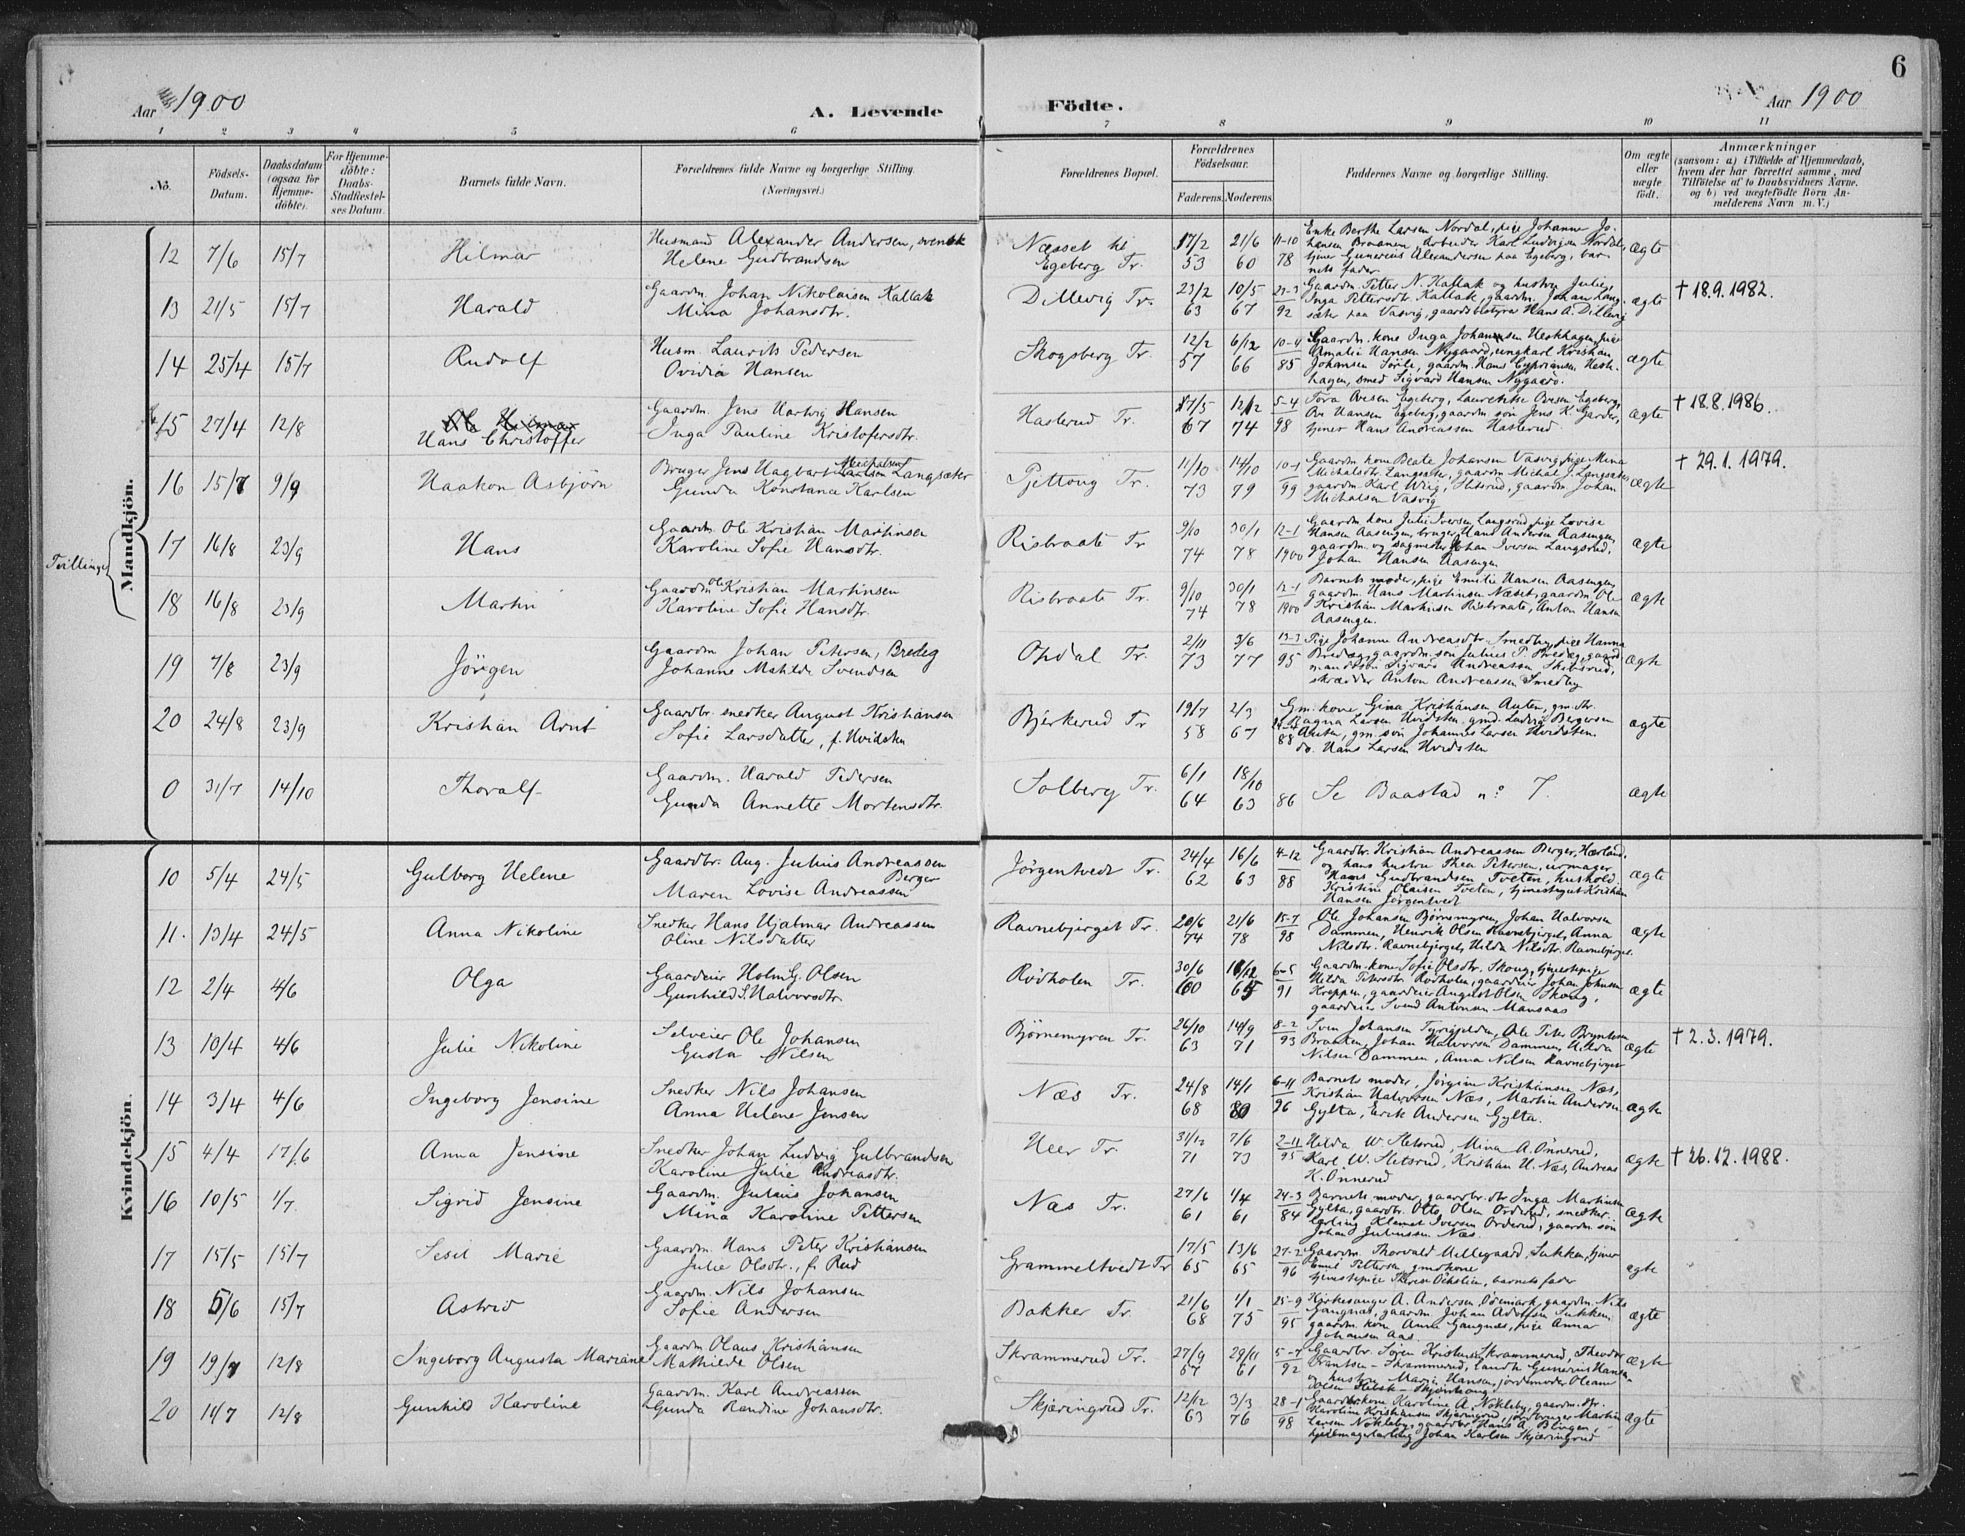 6
Aar 1900
A. Levende
Födte.
Aar 1900
1 2 3 4 5 6 7 8 9 10 11
No.
Födsels-Datum.
Daabsdatum (ogsaa for Hjemme-döbte).
For Hjemme-döbte: Daabs-Stadfæstel-ses Datum.
Barnets fulde Navn.
Forældrenes fulde Navne og borgerlige Stilling.
(Næringsvei.)
Forældrenes Bopæl.
Forældrenes Födselsaar.
Faderens. Moderens.
Faddernes Navne og borgerlige Stilling.
Om ægte eller uægte födt.
Anmærkninger
(saasom: a) i Tilfælde af Hjemmedaab, hvem der har forrettet samme, med Tilföielse af to Daabsvidners Navne, og b) ved uægtefödte Börn An-melderens Navn m. V.)
Mandkjön.
12 7/6 15/7 Hilmar Husmand Alexander Andersen, svensk
Helene Gudbrandsen
Næsset
Egeberg Tr. 17/2 53 21/6 60 11-10 78
Enke Berthe Larsen Nordal, pige Johanne Jo-
hansen Braanen, Arbeider Karl Ludvigsen Nordal,
tjener Gunerius Alexandersen paa Egeberg, bar-
nets fader
ægte
13 21/5 15/7 Harald Gaardm. Johan Nikolaisen Kallak
Mina Johansdtr.
Dillevig Tr. 23/2 63 10/5 67 92
Gaardm. Petter N. Kallak og hustru Julie,
Inga Pettersdtr Kallak, gaardm. Johan Lang-
sæter paa Vasvig, gaardsbestyrer Hans A. Dillevig
ægte
† 18.9.1982.
14 25/4 15/7 Rudolf Husm. Laurits Pedersen
Ovidia Hansen
Skogsberg Tr. 12/2 57 6/12 66 10-4 85
Gaardm. kone Inga Johansen Heskhagen, pige
Amalie Hansen Nygaard, ungkarl Kristian
Johansen Sörli, gaardm. Hans Cypriansen Hesk-
hagen, smed Sigvard Hansen Nygaard.
ægte
15 27/4 12/8 Hans Christoffer Gaardm. Jens Hartvig Hansen
Inga Pauline Kristofersdtr.
Hasterud Tr. 17/5 67 12/12 74 5-4 98
Tora Ovesen Egeberg, Laurekke Ovesen Egeberg,
Ove Hansen Egeberg, gaardm. søn Jens K. Garder,
tjener Hans Andreassen Hasterud
ægte
† 18.8.1986.
16 15/7 9/9 Haakon Asbjörn Bruger Jens Hagbart Michalsen Langsæter
Gunda Konstance Karlsen
Tjettong Tr. 11/10 73 14/10 79 10-1 99
Gaardm kone Beate Johansen Vasvig, pige Mina
Michalsdtr. Langsæter, gaardm Michal J. Langsæter
gaardm Karl Wiig, Sletsrud, gaardm Johan
Michalsen Vasvig
ægte
† 29.1.1979.
Tvillinger
17 16/8 23/9 Hans Gaardm Ole Kristian Martinsen
Karoline Sofie Hansdtr.
Risbraate Tr 9/10 74 30/1 78 12-1 1900
Gaardm kone Julie Iversen Langsrud, pige Lovise
Hansen Aasengen, bruger Hans Andersen Aasengen,
gaardm. og sagmester Johan Iversen Langsrud,
Johan Hansen Aasengen
ægte
18 16/8 23/9 Martin Gaardm Ole Kristian Martinsen
Karoline Sofie Hansdtr.
Risbraate Tr. 9/10 74 30/1 78 12-1 1900
Barnets moder, pige Emilie Hansen Aasengen,
gaardm. Hans Martinsen Næset, gaardm Ole
Kristian Markusen Risbraate, Anton Hansen
Aasengen.
ægte
19 7/8 23/9 Jörgen Gaardm Johan Petersen, Bredeg
Johanne Mathilde Svendsen
Opdal Tr. 2/11 73 3/6 77 13-3 95
Pige Johanne Andreasdtr. Smedby, pige Hanna
Bredeg, gaardm. søn Julius P. Bredeg, gaard-
mandssøn Sigvard Andreassen Skibsrud,
skrædder Anton Andreassen Smedby
ægte
20 24/8 23/9 Kristian Arnt Gaardbr. snedker August Kristiansen
Sofie Larsdatter, f. Hvidsten
Bjerkerud Tr 19/7 58 2/3 67 88
Gm. kone Gina Kristiansen Auten, gm. dtr.
Ragna Larsen Hvidsten. gmd. Ludvig Bergersen
Auten, gm. søn Johannes Larsen Hvidsten.
do. Hans Larsen Hvidsten
ægte
0 31/7 14/10 Thoralf Gaardm. Harald Pedersen
Gunda Annette Mortensdtr.
Solberg Tr. 6/1 64 18/10 63 86
Se Baastad no 7.
ægte
Kvindekjön.
10 5/4 24/5 Gulborg Helene Gaardbr. Aug. Julius Andreassen
Berger
Maren Lovise Andreassen
Jørgentvedt Tr. 24/4 62 16/6 63 4-12 88
Gaardbr. Kristian Andreassen Berger, Hærland,
og hans hustru Thea Petersen, urmager
Hans Gudbrandsen Tveten, hushold.
Kristine Olaisen Tveten, tjenestegut Kristian
Hansen Jørgentvedt
ægte
11. 13/4 24/5 Anna Nikoline Snedker Hans Hjalmar Andreassen
Oline Nilsdatter
Ravnebjerget Tr. 20/6 74 21/6 78 15-7 98
Ole Johansen Bjørnemyren, Johan Halvorsen
Dammen, Henrik Olsen Ravnebjerget, Anna
Nilsdtr. Ravnebjerget, Hilda Nilsdtr. Ravnebjerget.
ægte
12 2/4 4/6 Olga Gaardeier Holm G. Olsen
Gunhild S. Halvorsdtr.
Rødholen Tr. 30/6 60 6-5 91
Gaardm. kone Sofie Olsdtr. Skoug, tjenestepige
Hilda Petersdtr Rødholen, gaardeier Johan Johnsen
Kreppen, gaardeier August Olsen Skoug,
gaardeier Svend Antonsen Mansaas
ægte
13 10/4 4/6 Julie Nikoline Selveier Ole Johansen
Gusta Nilsen
Bjørnemyren Tr. 26/10 63 14/9 71 8-2 93
Sven Johansen Tyrigjelden, Ole Peter Bryntesen
Braaten, Johan Halvorsen Dammen, Hilda
Nilsen Dammen, Anna Nilsen Ravnebjerget
ægte
† 2.3.1979.
14 3/4 4/6 Ingeborg Jensine Snedker Nils Johansen
Anna Helene Jensen
Næs Tr. 24/8 68 14/1 80 6-11 96
Barnets moder, Jørgine Kristiansen Næs,
Kristian Halvorsen Næs, Martin Andersen
Gylta, Erik Andersen Gylta.
ægte
15 4/4 17/6 Anna Jensine Snedker Johan Ludvig Gulbrandsen
Karoline Julie Andreasdtr.
Heer Tr. 31/12 71 7/6 73 2-11 95
Hilda W. Sletsrud, Mina A. Önnerud,
Karl W. Sletsrud, Kristian H. Næs, Andreas
K. Önnerud
ægte
† 26.12.1988.
16 10/5 1/7 Sigrid Jensine Gaardm. Julius Johansen
Mina Karoline Pettersen
Næs Tr. 27/6 61 1/4 61 24-3 84
Barnets moder, gaardbr. dtr Inga Martinsen
Gylta, gaardbr. Otto Olsen Orderud, snedker-
lærling Klemet Iversen Orderud, gaardm. søn
Johan Juliussen Næs.
ægte
17 15/5 15/7 Sesil Marie Gaardm. Hans Peter Kristiansen
Julie Olsdtr., f. Rud
Grammeltvedt Tr 17/5 65 13/6 65 27-2 96
Gaardm. Thorvald Hellegaard, Sukken, tjener
Emil Pettersen, gmdkone
tjenestepige Therese Ödeslien, barnets fader
ægte
18 5/6 15/7 Astrid Gaardm. Nils Johansen
Sofie Andersen
Bakker Tr. 21/6 68 1/1 75 25-9 95
Kirkesanger A. Andersen, Ödemark, gaardm. Nils
Gangnæs, gaardm. Johan Adolfsen Sukken,
gaardm. kone Anna Gangnæs, pige Anna
Johansen Aas.
ægte
19 19/7 12/8 Ingeborg Augusta Mariane Gaardm Olaus Kristiansen
Mathilde Olsen
Skrammerud Tr. 27/9 67 29/11 61 5-7 92
Gaardbr. Søren Kristians. Skrammerud, Theodor
Frantsen-Skrammerud, landh. Gunerius Hansen
og hustru Maria Hansen, jordemoder Oleane
ægte
20 11/7 12/8 Gunhild Karoline Gaardm. Karl Andreassen
Gunda Randine Johansdtr.
Skjæringrud Tr. 12/12 63 3/3 76 28-1 98
Gaardbr. kone Karoline A. Nøkleby, gaardm. dtr.
Karoline Kristiansen Skjæringrud, jordbruger Martin
Larsen Nøkleby, gaardbr Hans A. Blingen,
hjulmagerlærling Johan Karlsen Skjæringrud
ægte